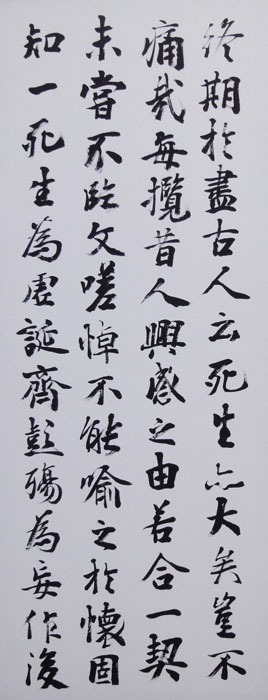 終期於盡古人云死生亦大矣豈不
痛哉每攬昔人興感之由若合一契
未嘗不臨文嗟悼不能喻之於懷固
知一死生為虛誕齊彭殤為妄作後